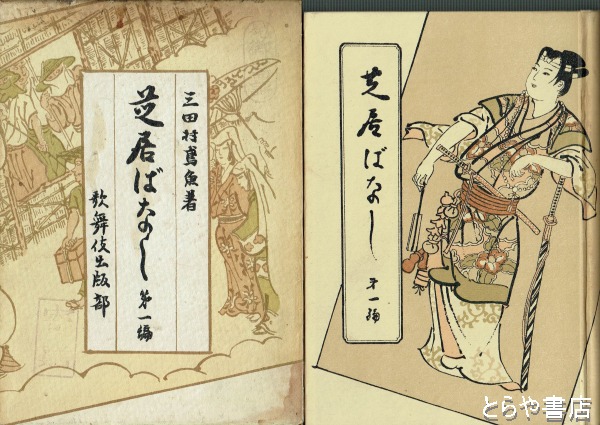 三田村鳶魚著
芝居ばなし 第一編
歌舞伎出版部
芝居ばなし
第一編
とらや書店